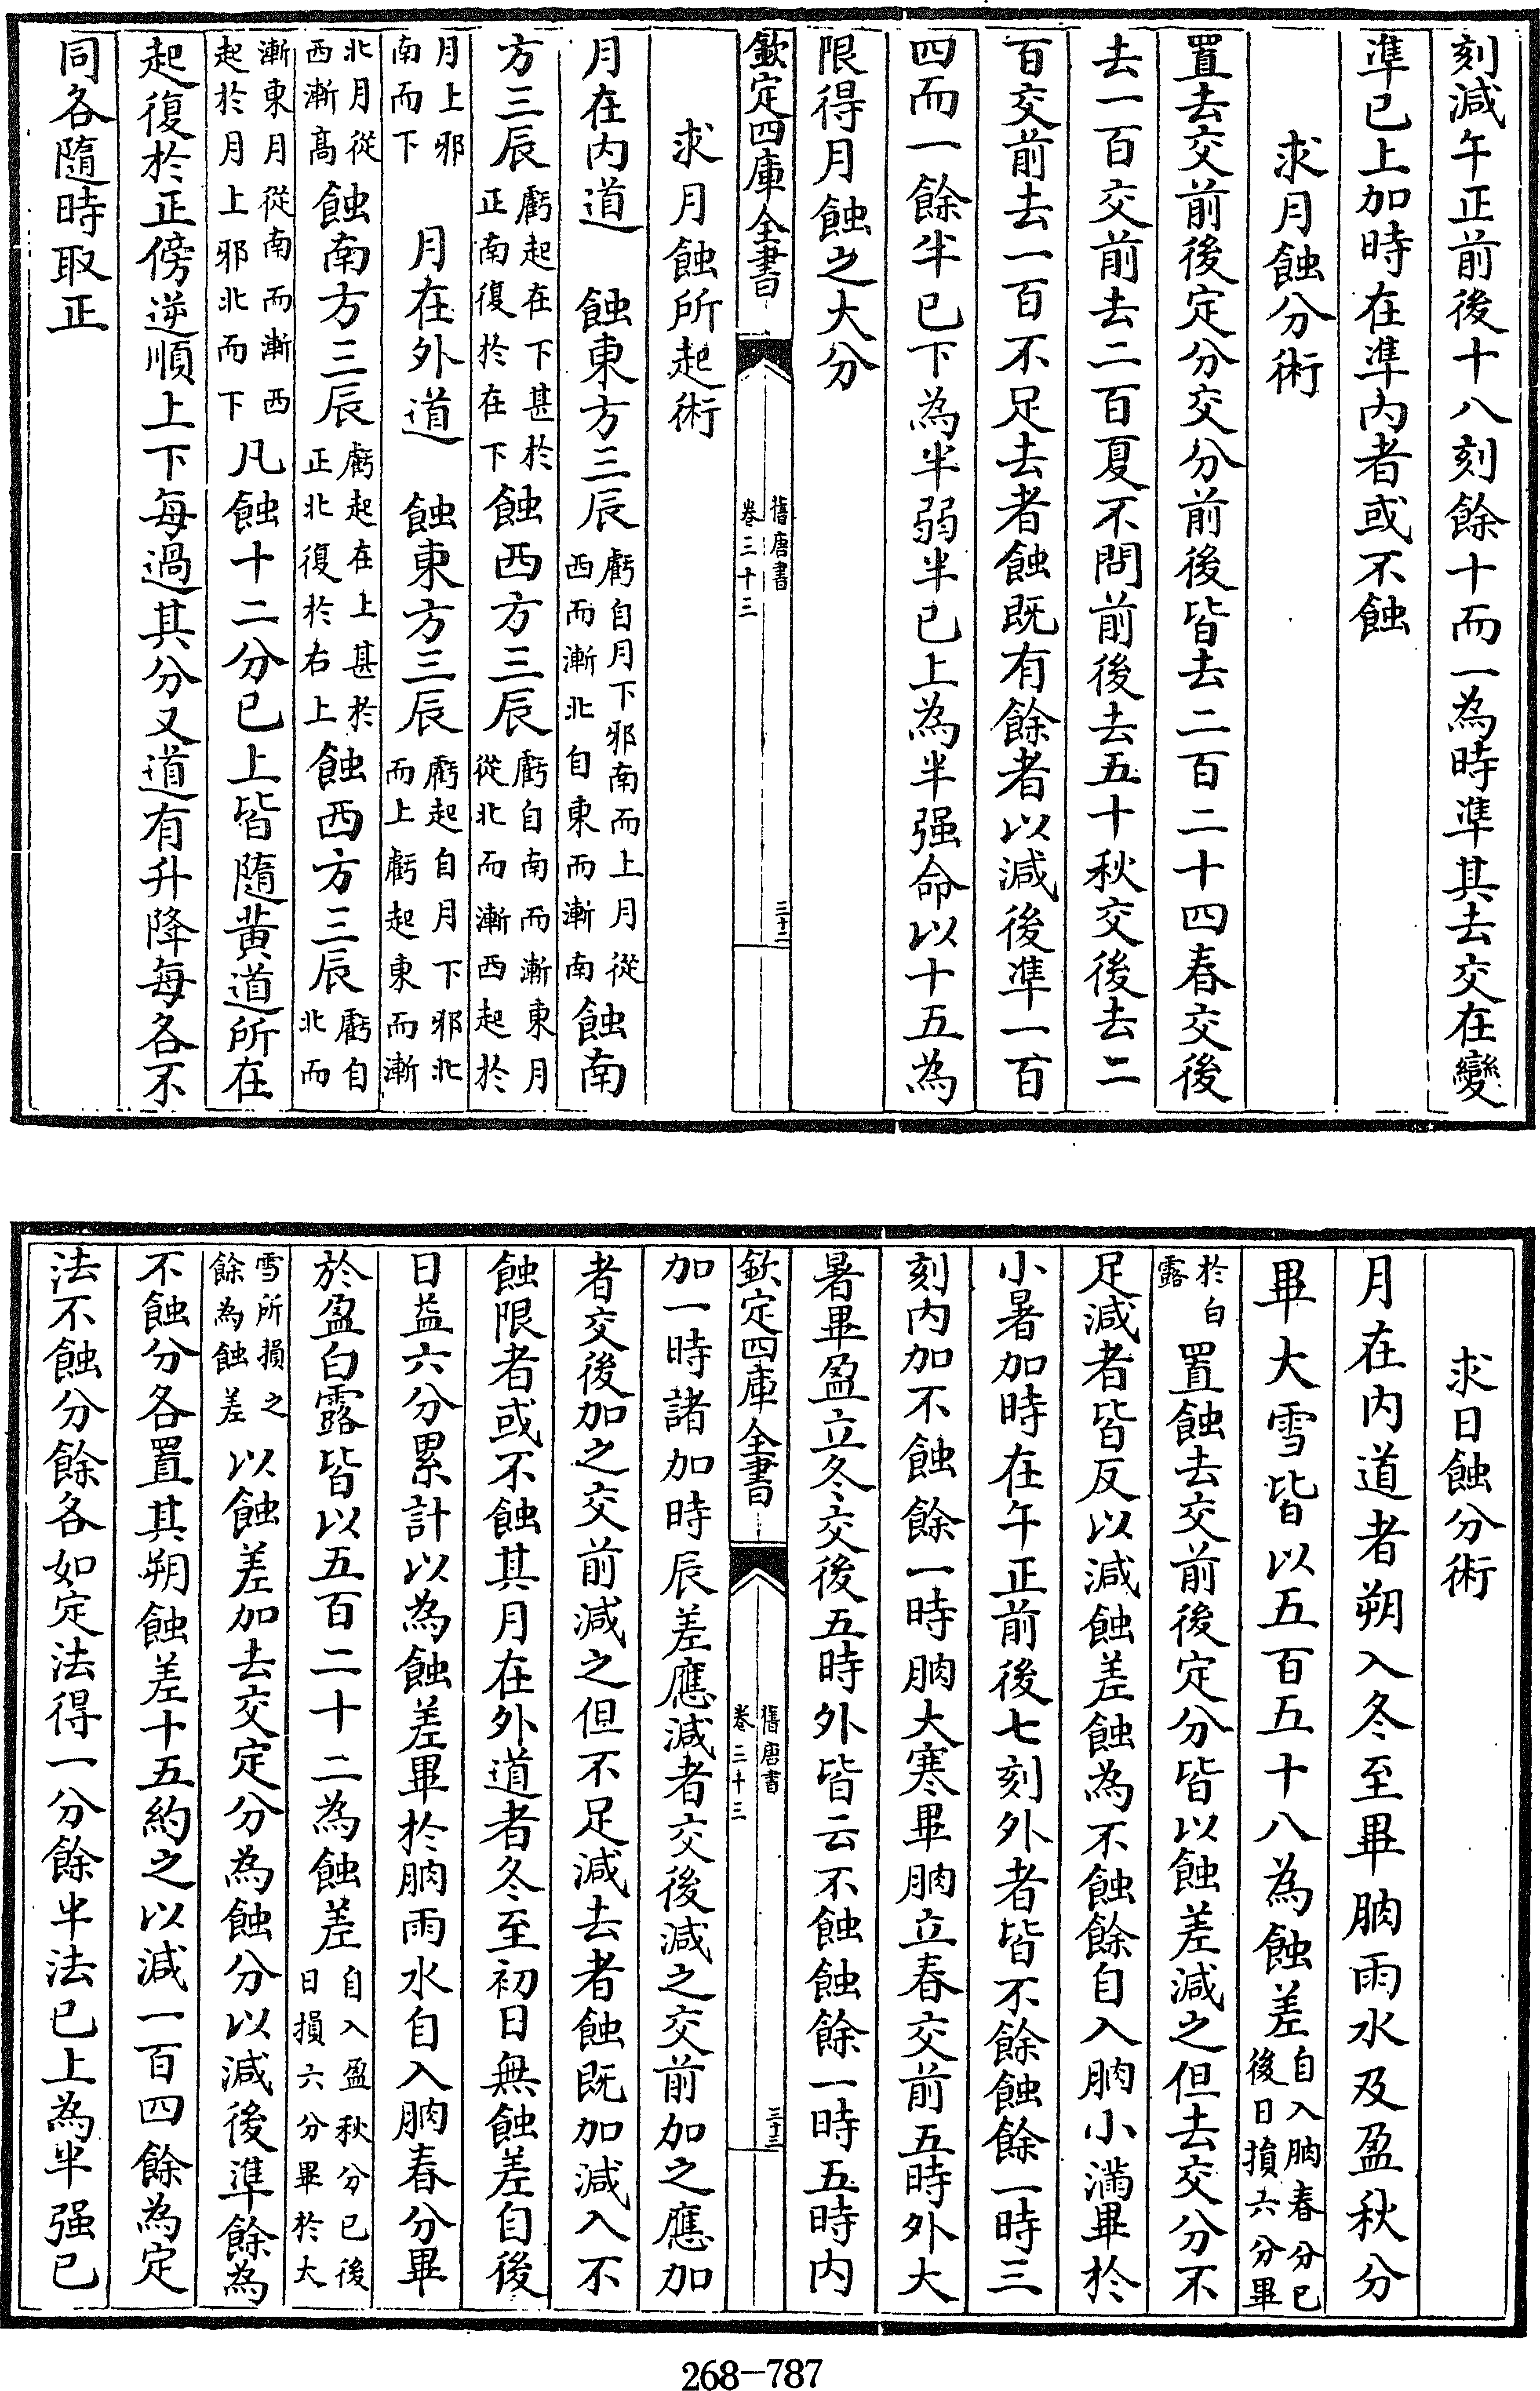 刻減午正前後十八刻餘十而一為時準其去交在變
準已上加時在準内者或不蝕
求月蝕分術
置去交前後定分交分前後皆去二百二十四春交後
去一百交前去二百夏不問前後去五十秋交後去二
百交前去一百不足去者蝕既有餘者以減後準一百
四而一餘半已下為半弱半已上為半强命以十五為
限得月蝕之大分
欽定四庫全書
舊唐書
卷三十三
三十二
求月蝕所起術
月在内道 蝕東方三辰虧自月下邪南而上月從西而漸北自東而漸南蝕南
方三辰虧起在下甚於正南復於在下蝕西方三辰虧自南而漸東月從北而漸西起於
月上邪南而下 月在外道 蝕東方三辰虧起自月下邪北而上虧起東而漸
北月從西漸高蝕南方三辰虧起在上甚於正北復於右上蝕西方三辰虧自北而
漸東月從南而漸西起於月上邪北而下凡蝕十二分已上皆隨黄道所在
起復於正傍逆順上下每過其分又道有升降每各不
同各隨時取正
求日蝕分術
月在内道者朔入冬至畢朒雨水及盈秋分
畢大雪皆以五百五十八為蝕差自入朒春分已後日損六分畢
於白露置蝕去交前後定分皆以蝕差減之但去交分不
足減者皆反以減蝕差蝕為不蝕餘自入朒小滿畢於
小暑加時在午正前後七刻外者皆不餘蝕餘一時三
刻内加不蝕餘一時朒大寒畢朒立春交前五時外大
暑畢盈立冬交後五時外皆云不蝕蝕餘一時五時内
欽定四庫全書
舊唐書
卷三十三
三十三
加一時諸加時辰差應減者交後減之交前加之應加
者交後加之交前減之但不足減去者蝕既加減入不
蝕限者或不蝕其月在外道者冬至初日無蝕差自後
日益六分累計以為蝕差畢於朒雨水自入朒春分畢
於盈白露皆以五百二十二為蝕差自入盈秋分已後日損六分畢於大
雪所損之餘為蝕差以蝕差加去交定分為蝕分以減後準餘為
不蝕分各置其朔蝕差十五約之以減一百四餘為定
法不蝕分餘各如定法得一分餘半法已上為半强已
268-787